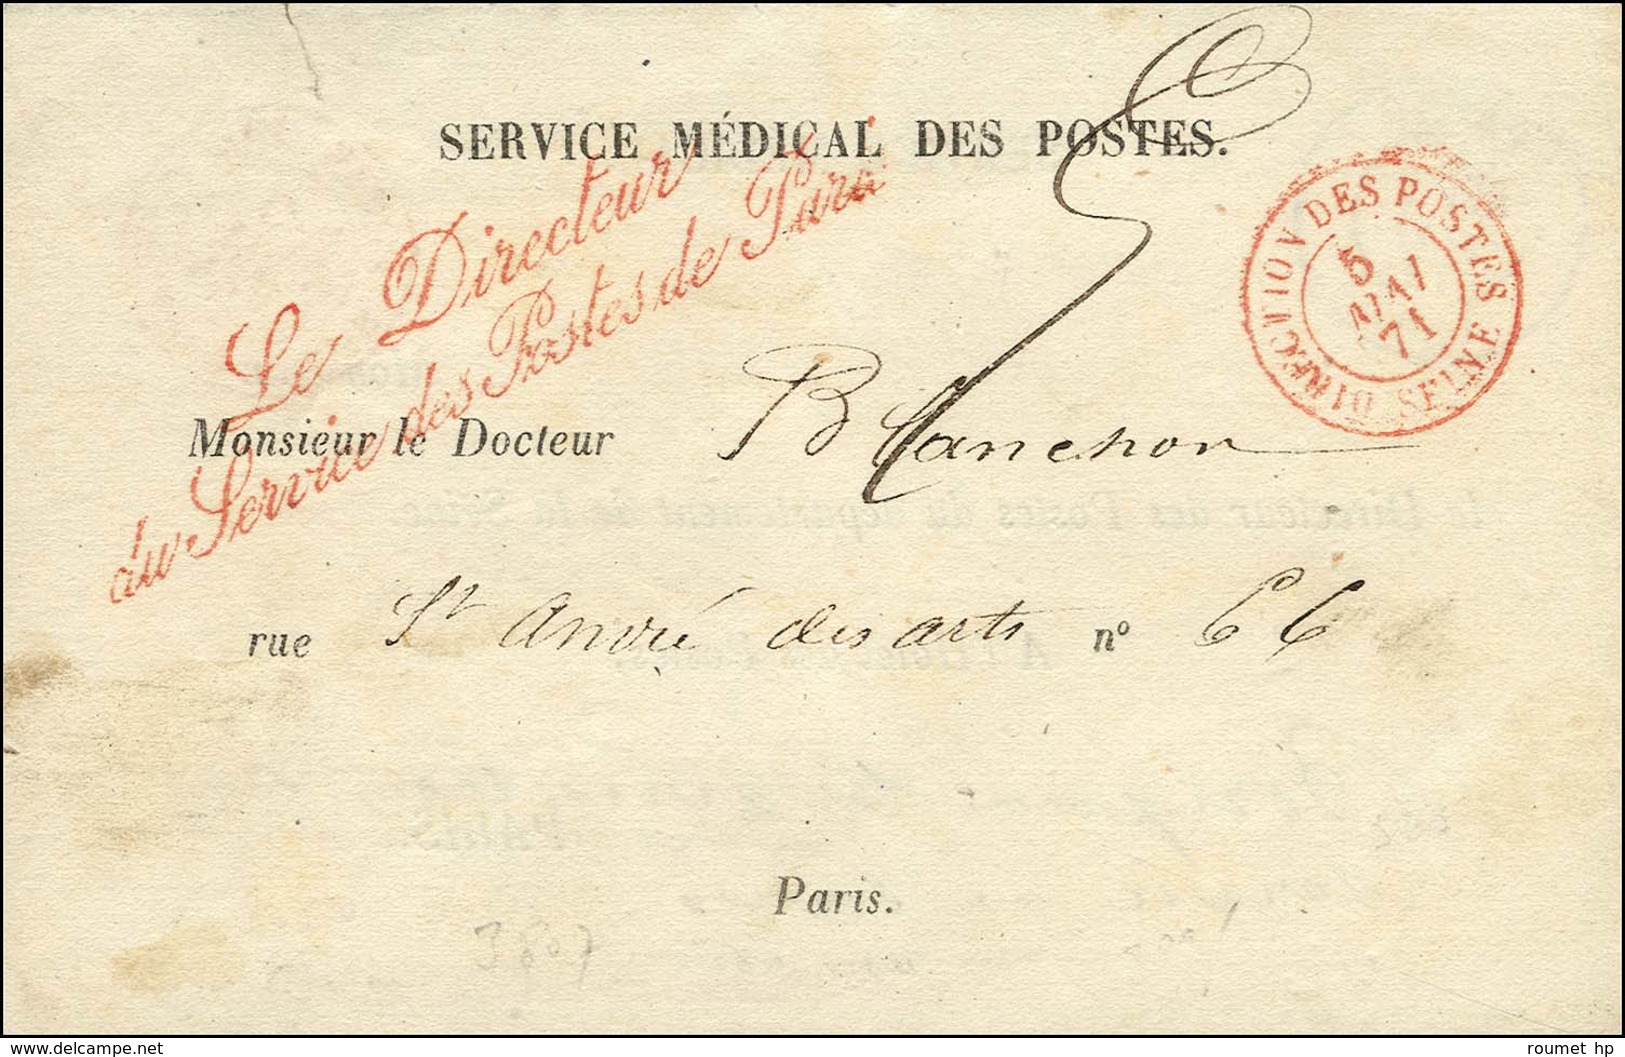 SERVICE MÉDICAL DES POSTES.
Le Directeur
du Service des Postes de Paris
DIRECTION DES POSTES SEINE
5
MAI
71
Monsieur le Docteur Blanchon
rue St André des arts n° 66
Paris.
www.delcampe.net
roumet hp